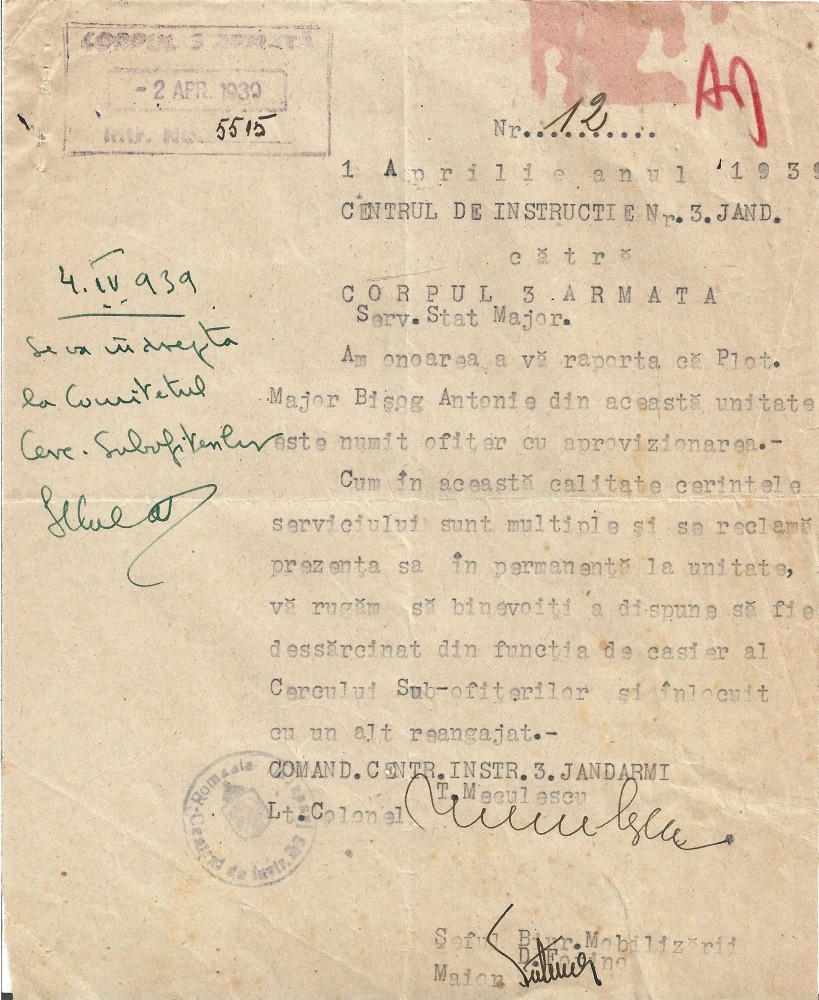 CORPUL 3 ARMATĂ
- 2 APR. 1939
Intr. No. 5515
Nr....12....
1 Aprilie anul 1939
CENTRUL DE INSTRUCTIE Nr.3.JAND.
cătră
CORPUL 3 ARMATA
Serv.Stat Major.
Am onoarea a vă raporta că Plot.
Major Bișog Antonie din această unitate
este numit ofițer cu aprovizionarea.-
Cum în această calitate cerintele
serviciului sunt multiple și se reclamă
prezența sa în permanență la unitate,
vă rugăm să binevoiți a dispune să fie
dessărcinat din funcția de casier al
Cercului Sub-ofițerilor și înlocuit
cu un alt reangajat.-
COMAND.CENTR.INSTR.3.JANDARMI
T.Meculescu
Lt.Colonel
Șeful Biur.Mobilizării
Maior
4.IV.939
Se va îndrepta
la Comitetul
Cerc. Subofițerilor
România
de Instr.